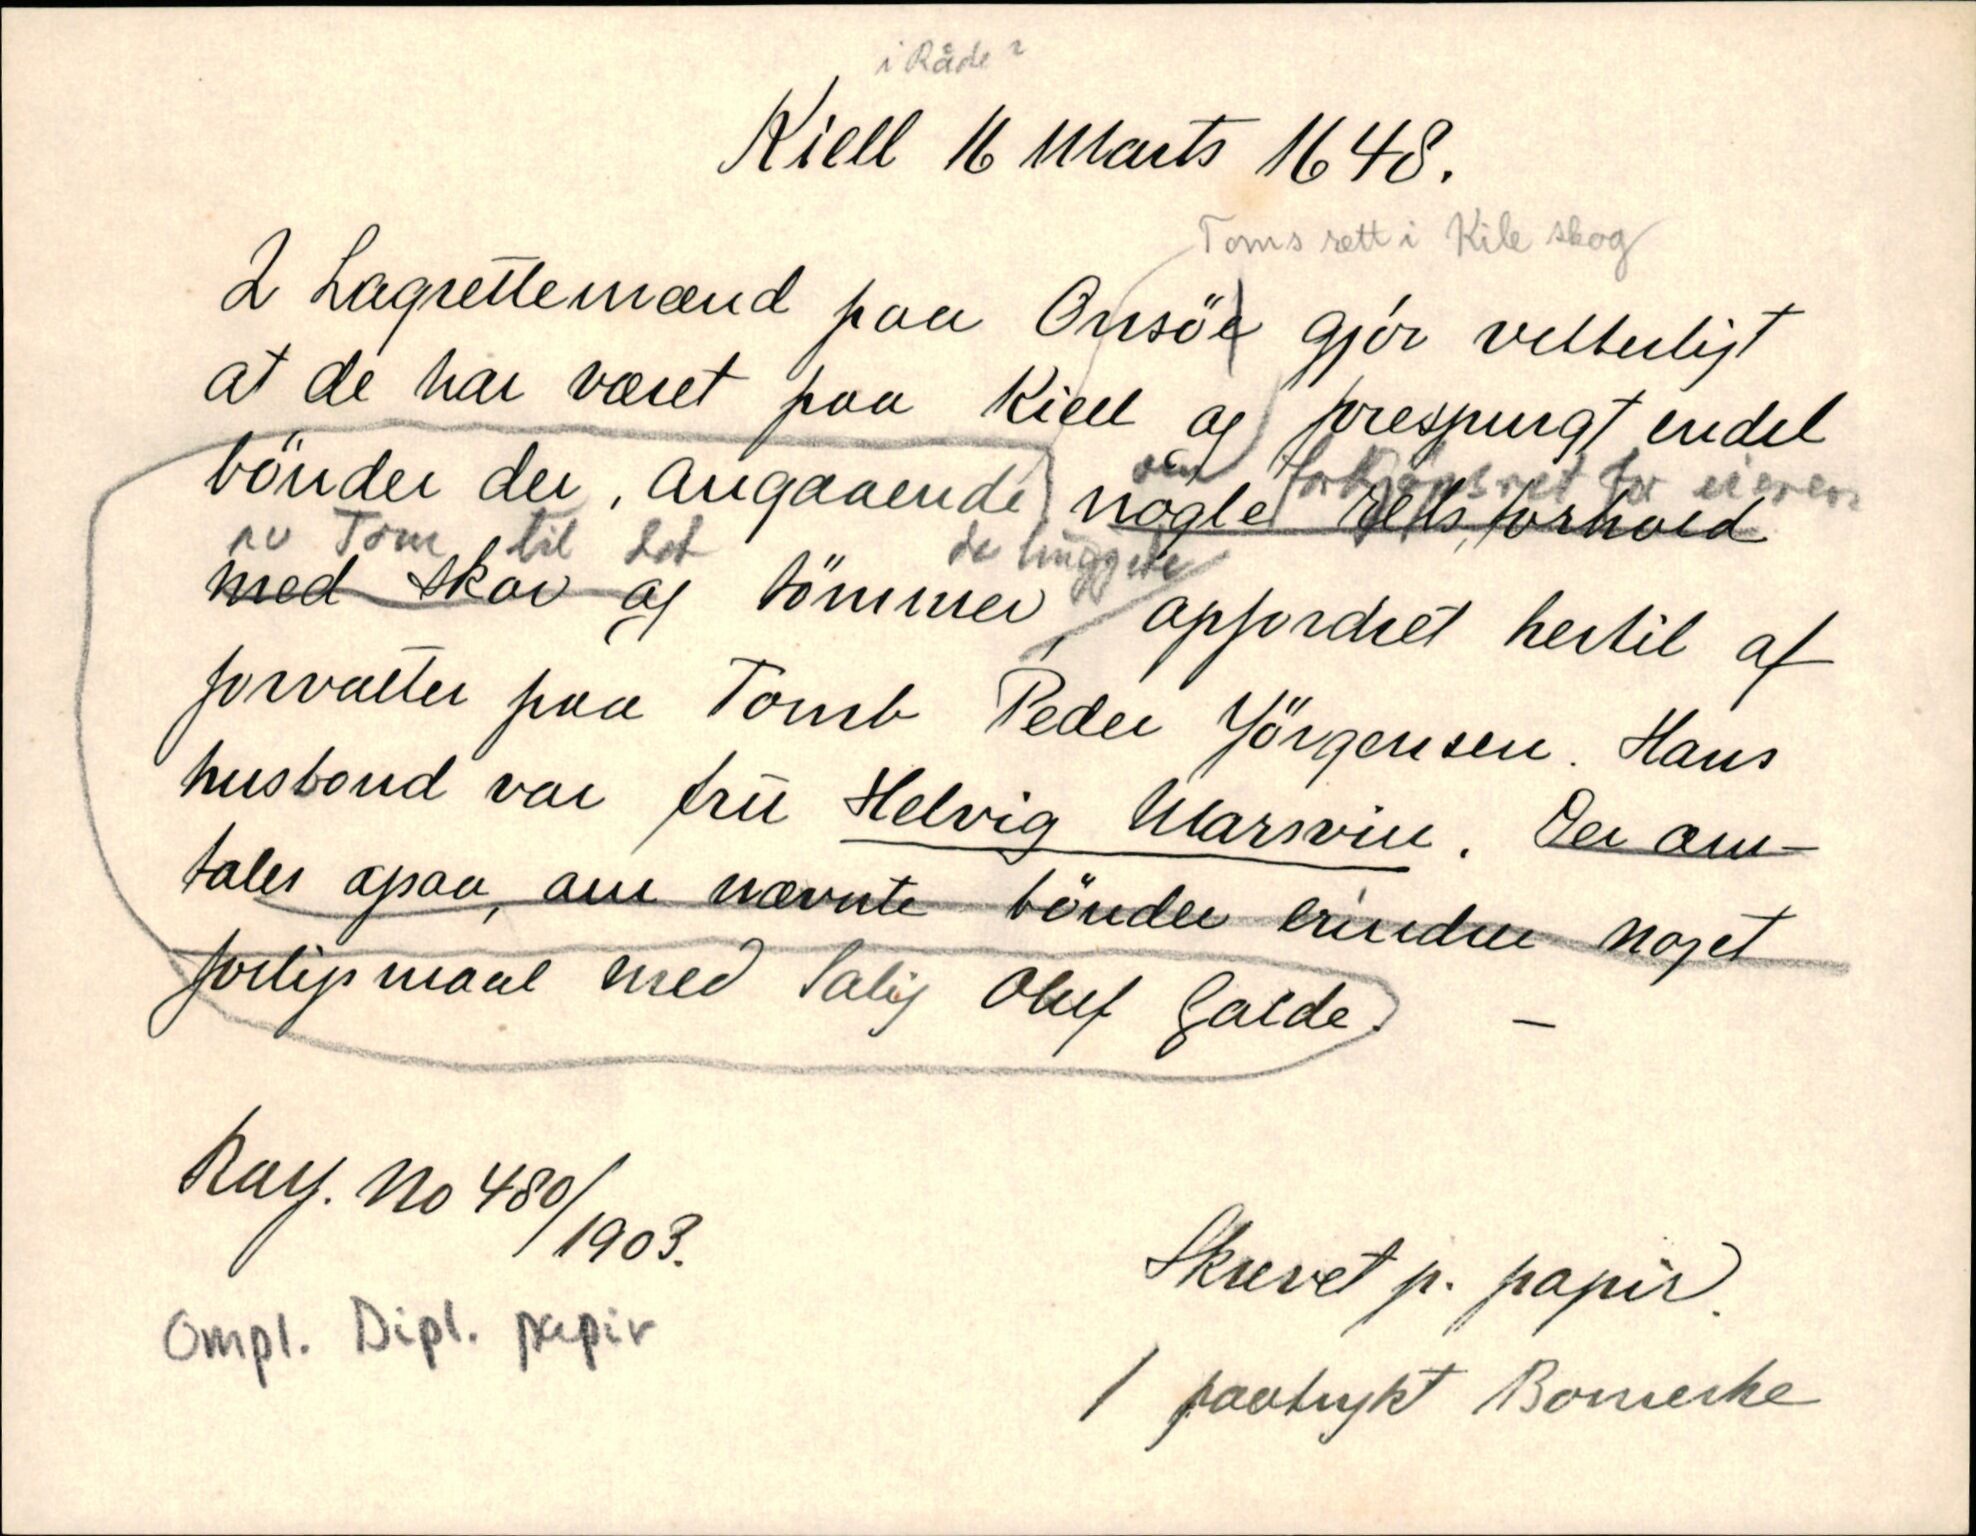 i Råde?
Kiell 16 Marts 1648.
Toms rett i Kile skog
2 Lagrettemænd paa Onsöe gjör vetterligt
at de har været paa Kiell og forespurgt endel
bönder der, angaaende nogle retts,forhold
om forkjøpsret for eieren
av Tom til det de huggede
med skov og tömmer, opfordret hertil af
forvalter paa Tomb Peder Jörgensen. Hans
husbond var fru Helvig Marsvin. Der om-
tales ogsaa, om nævnte bönder erindrer noget
forligsmaal med Salig Oluf Galde. —
Kay. No 480/1903.
Ompl. Dipl. papir
Skrevet p. papir.
1 paatrykt Bomerke